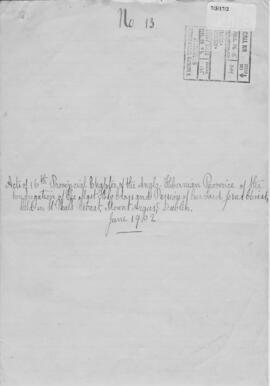 No 13
Acts of 16th Provincial Chapter of the Anglo Hibernian Province of the
Congregation of the Most Holy Cross and Passion of Our Lord Jesus Christ,
held in St Paul's Retreat, Mount Argus, Dublin.
June 1902